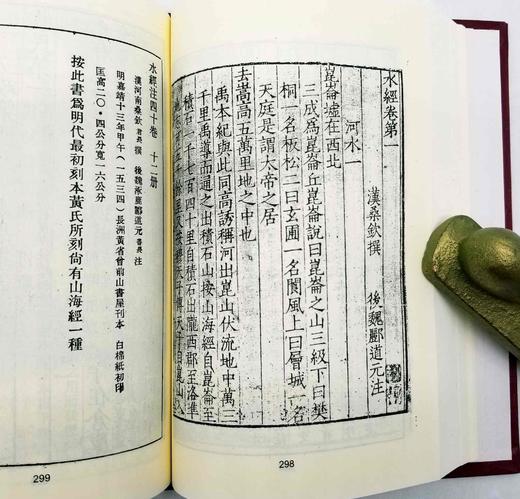 水經卷第一
漢桑欽撰 後魏酈道元注
河水一
崑崙墟在西北
三成爲崑崙丘崑崙說曰崑崙之山三級下曰樊
桐一名板松二曰玄圃一名閬風上曰層城一名
天庭是謂太帝之居
去嵩高五萬里地之中也
禹本紀與此同高誘稱河出崑山伏流地中萬三
千里禹導而通之出積石山按山海經自崑崙至
積石一千七百四十里自積石出隴西郡至洛準
里又按穆天子傳天子自崑山入
298
水經注四十卷 十二册
漢河南桑欽君長撰 後魏涿鹿酈道元善長注
明嘉靖十三年甲午(一五三四)長洲黃省曾前山書屋刊本 白棉紙初印
匡高二〇·四公分寬一六公分
按此書爲明代最初刻本黃氏所刻尙有山海經一種
299